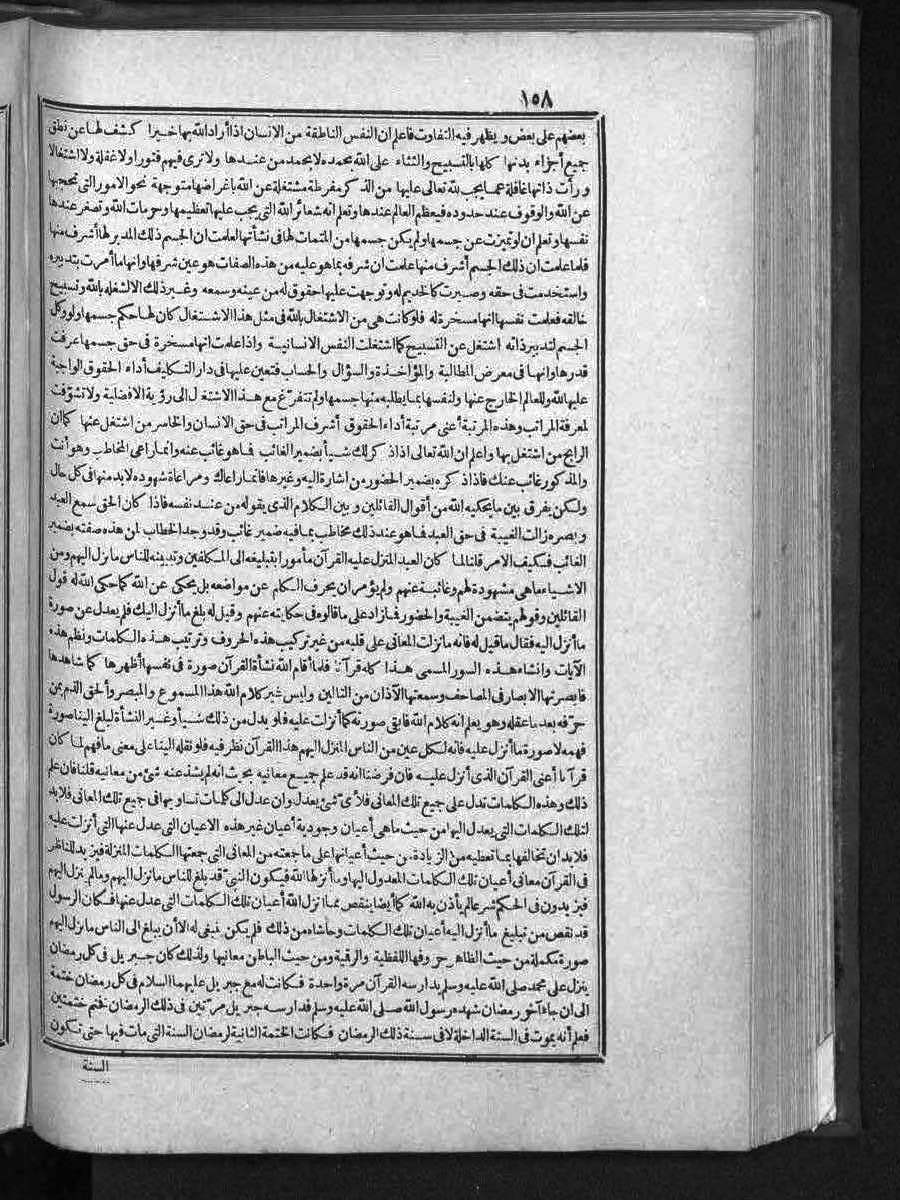 ١٥٨
بعضهم على بعض ويظهر فيه التفاوت فاعلم ان النفس الناطقة من الانسان اذا أراد الله بها خيرا كشف لها عن نطق
جميع أجزاء بدنها كلها بالتسبيح والثناء على الله بحمده لا بحمد من عندها ولا ترى فيهم فتورا ولا غفلة ولا اشتغالا
ورأت ذاتها غافلة عما يجب لله تعالى عليها من الذكر مفرطة مشتغلة عن الله باغراضها متوجهة نحو الامور التي تحجبها
عن الله والوقوف عند حدوده فيعظم العالم عندها وتعلم انه شعائر الله التي يجب عليها تعظيمها وحرمات الله وتصغر عندها
نفسها وتعلم ان لو تميزت عن جسمها ولم يكن جسمها من المتمات لها في نشأتها لعلمت ان الجسم ذلك المدبر لها أشرف منها
فلما علمت ان ذلك الجسم أشرف منها علمت ان شرفه بما هو عليه من هذه الصفات هو عين شرفها وانها ما أمرت بتدبيره
واستخدمت في حقه وصيرت كالخديم له وتوجهت عليها حقوق له من عينه وسمعه وغير ذلك الا لشغله بالله وتسبيح
خالقه فعلمت نفسها انها مسخرة له فلو كانت هي من الاشتغال بالله في مثل هذا الاشتغال كان لها حكم جسمها ولو وكل
الجسم لتدبير ذاته اشتغل عن التسبيح كما اشتغلت النفس الانسانية واذا علمت انها مسخرة في حق جسمها عرفت
قدرها وانها في معرض المطالبة والمؤاخذة والسؤال والحساب فتعين عليها في دار التكليف أداء الحقوق الواجبة
عليها لله وللعالم الخارج عنها ولنفسها بما يطلبه منها جسمها ولم تتفرّغ مع هذا الاشتغال الى رؤية الافضلية ولا تشوّفت
لمعرفة المراتب وهذه المرتبة أعنى مرتبة أداء الحقوق أشرف المراتب في حق الانسان والخاسر من اشتغل عنها كما ان
الرابح من اشتغل بها واعلم ان الله تعالى اذا ذكر لك شيأ بضمير الغائب فما هو غائب عنه وانما راعى المخاطب وهو أنت
والمذكور غائب عنك فاذا ذكره بضمير الحضور من اشارة اليه وغيرها فانما راعاك ومراعاة شهوده لا بد منها في كل حال
ولكن يفرق بين ما يحكيه الله من أقوال القائلين وبين الكلام الذي يقوله من عند نفسه فاذا كان الحق سمع العبد
وبصره زالت الغيبة في حق العبد فما هو عند ذلك مخاطب بما فيه ضمير غائب وقد وجد الخطاب لمن هذه صفته بضمير
الغائب فكيف الامر قلنا لما كان العبد المنزل عليه القرآن مأمورا بتبليغه الى المكلفين وتبيينه للناس ما نزل اليهم ومن
الاشياء ما هي مشهودة لهم وغائبة عنهم ولم يؤمر ان يحرف الكلم عن مواضعه بل يحكى عن الله كما حكى الله له قول
القائلين وقولهم يتضمن الغيبة والحضور فما زاد على ما قالوه في حكايته عنهم وقيل له بلغ ما أنزل اليك فلم يعدل عن صورة
ما أنزل اليه فقال ما قيل له فانه ما نزلت المعاني على قلبه من غير تركيب هذه الحروف وترتيب هذه الكلمات ونظم هذه
الآيات وانشاء هذه السور المسمى هذا كله قرآنا فلما أقام الله نشأة القرآن صورة في نفسها أظهرها كما شاهدها
فابصرتها الابصار في المصاحف وسمعتها الآذان من التالين وليس غير كلام الله هذا المسموع والمبصر وألحق الذم بمن
حرّفه بعد ما عقله وهو يعلم انه كلام الله فابقى صورته كما أنزلت عليه فلو بدل من ذلك شيأ وغير النشأة لبلغ الينا صورة
فهمه لا صورة ما أنزل عليه فانه لكل عين من الناس المنزل اليهم هذا القرآن نظر فيه فلو نقله الينا على معنى ما فهم لما كان
قرآنا أعنى القرآن الذي أنزل عليه فان فرضنا انه قد علم جميع معانيه بحيث انه لم يشذ عنه شئ من معانيه قلنا فان علم
ذلك وهذه الكلمات تدل على جميع تلك المعاني فلأىّ شئ يعدل وان عدل الى كلمات تساويها في جميع تلك المعاني فلا بد
لتلك الكلمات التي يعدل اليها من حيث ما هي أعيان وجودية أعيان غير هذه الاعيان التي عدل عنها التي أنزلت عليه
فلا بد ان تخالفها بما تعطيه من الزيادة من حيث أعيانها على ما جمعته من المعاني التي جمعتها الكلمات المنزلة فيزيد للناظر
في القرآن معاني أعيان تلك الكلمات المعدول اليها وما أنزلها الله فيكون النبيّ قد بلغ للناس ما نزل اليهم وما لم ينزل اليهم
فيزيدون في الحكم شرعا لم يأذن به الله كما أيضا ينقص مما أنزل الله أعيان تلك الكلمات التي عدل عنها فكان الرسول
قد نقص من تبليغ ما أنزل اليه أعيان تلك الكلمات وحاشاه من ذلك فلم يكن ينبغى له الا أن يبلغ الى الناس ما نزل اليهم
صورة مكملة من حيث الظاهر حروفها اللفظية والرقمية ومن حيث الباطن معانيها ولذلك كان جبريل في كل رمضان
ينزل على محمد صلى الله عليه وسلم يدارسه القرآن مرة واحدة فكانت له مع جبريل عليهما السلام في كل رمضان ختمة
الى ان جاء آخر رمضان شهده رسول الله صلى الله عليه وسلم فدارسه جبريل مرّتين في ذلك الرمضان فختم ختمتين
فعلم أنه يموت في السنة الداخلة لا في سنة ذلك الرمضان فكانت الختمة الثانية لرمضان السنة التي مات فيها حتى تكون
السنة